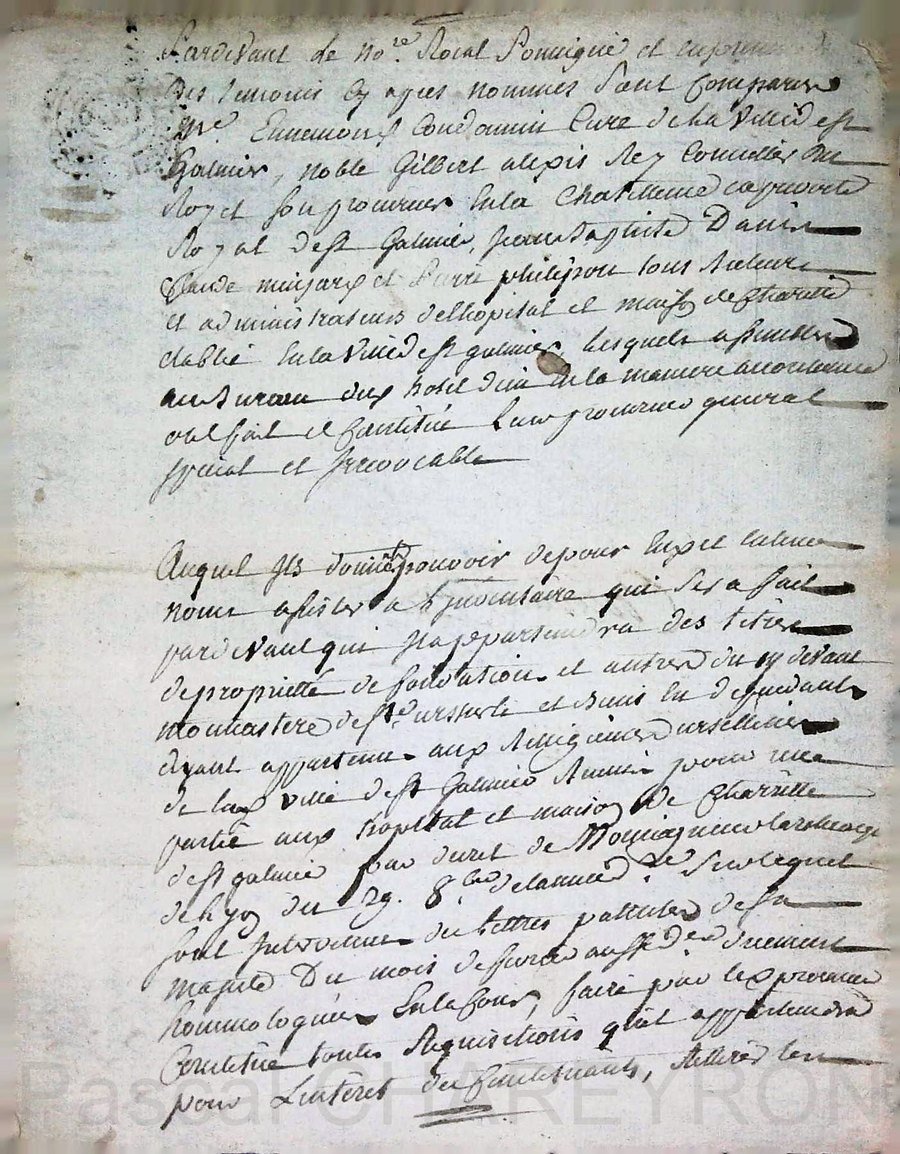 Pardevant le No.re Roial Soussigné et en presence
des temoins cy apres nommés sont comparus
m.re Ennemond Condamin Curé de la ville de st
Galmier, noble Gilbert alexis Rey Conseiller du
Roy et son procureur en la Chatellenie capne et ville
Royal de st Galmier, Jean Baptiste Danis
et Pierre philipon tous Recteurs
et administrateurs de lhopital et maison de Charité
établie en la ville de st galmier, lesquels assemblés
au Bureau dud. hotel dieu en la maniere accoutumée
ont fait et Constitué Leur procureur general
special et Irrevocable
Auquel Ils donnent pouvoir de pour Eux et en leur
nom assister a L'inventaire qui sera fait
pardevant qui Il appartiendra des titres
de propriété de fondation et autres du cy devant
monastere de ste ursule et Biens en dependants
ayant appartenu aux Religieuses ursulines
de lad. ville de st Galmier Reunis pour une
partie aux hopital et maison de Charité
de st galmier par decret de Monseigneur larcheveque
de Lyon du 29. 8bre de lannée d.re Sur lequel
sont Intervenues des lettres patentes de sa
majesté Du mois de fevrier aussi d.er duement
hommologuées En la Cour, faire par led. procureur
Constitué toutes Requisitions quil appartiendra
pour L'interet des Constituants, Retirer les
Pascal CHAREYRON